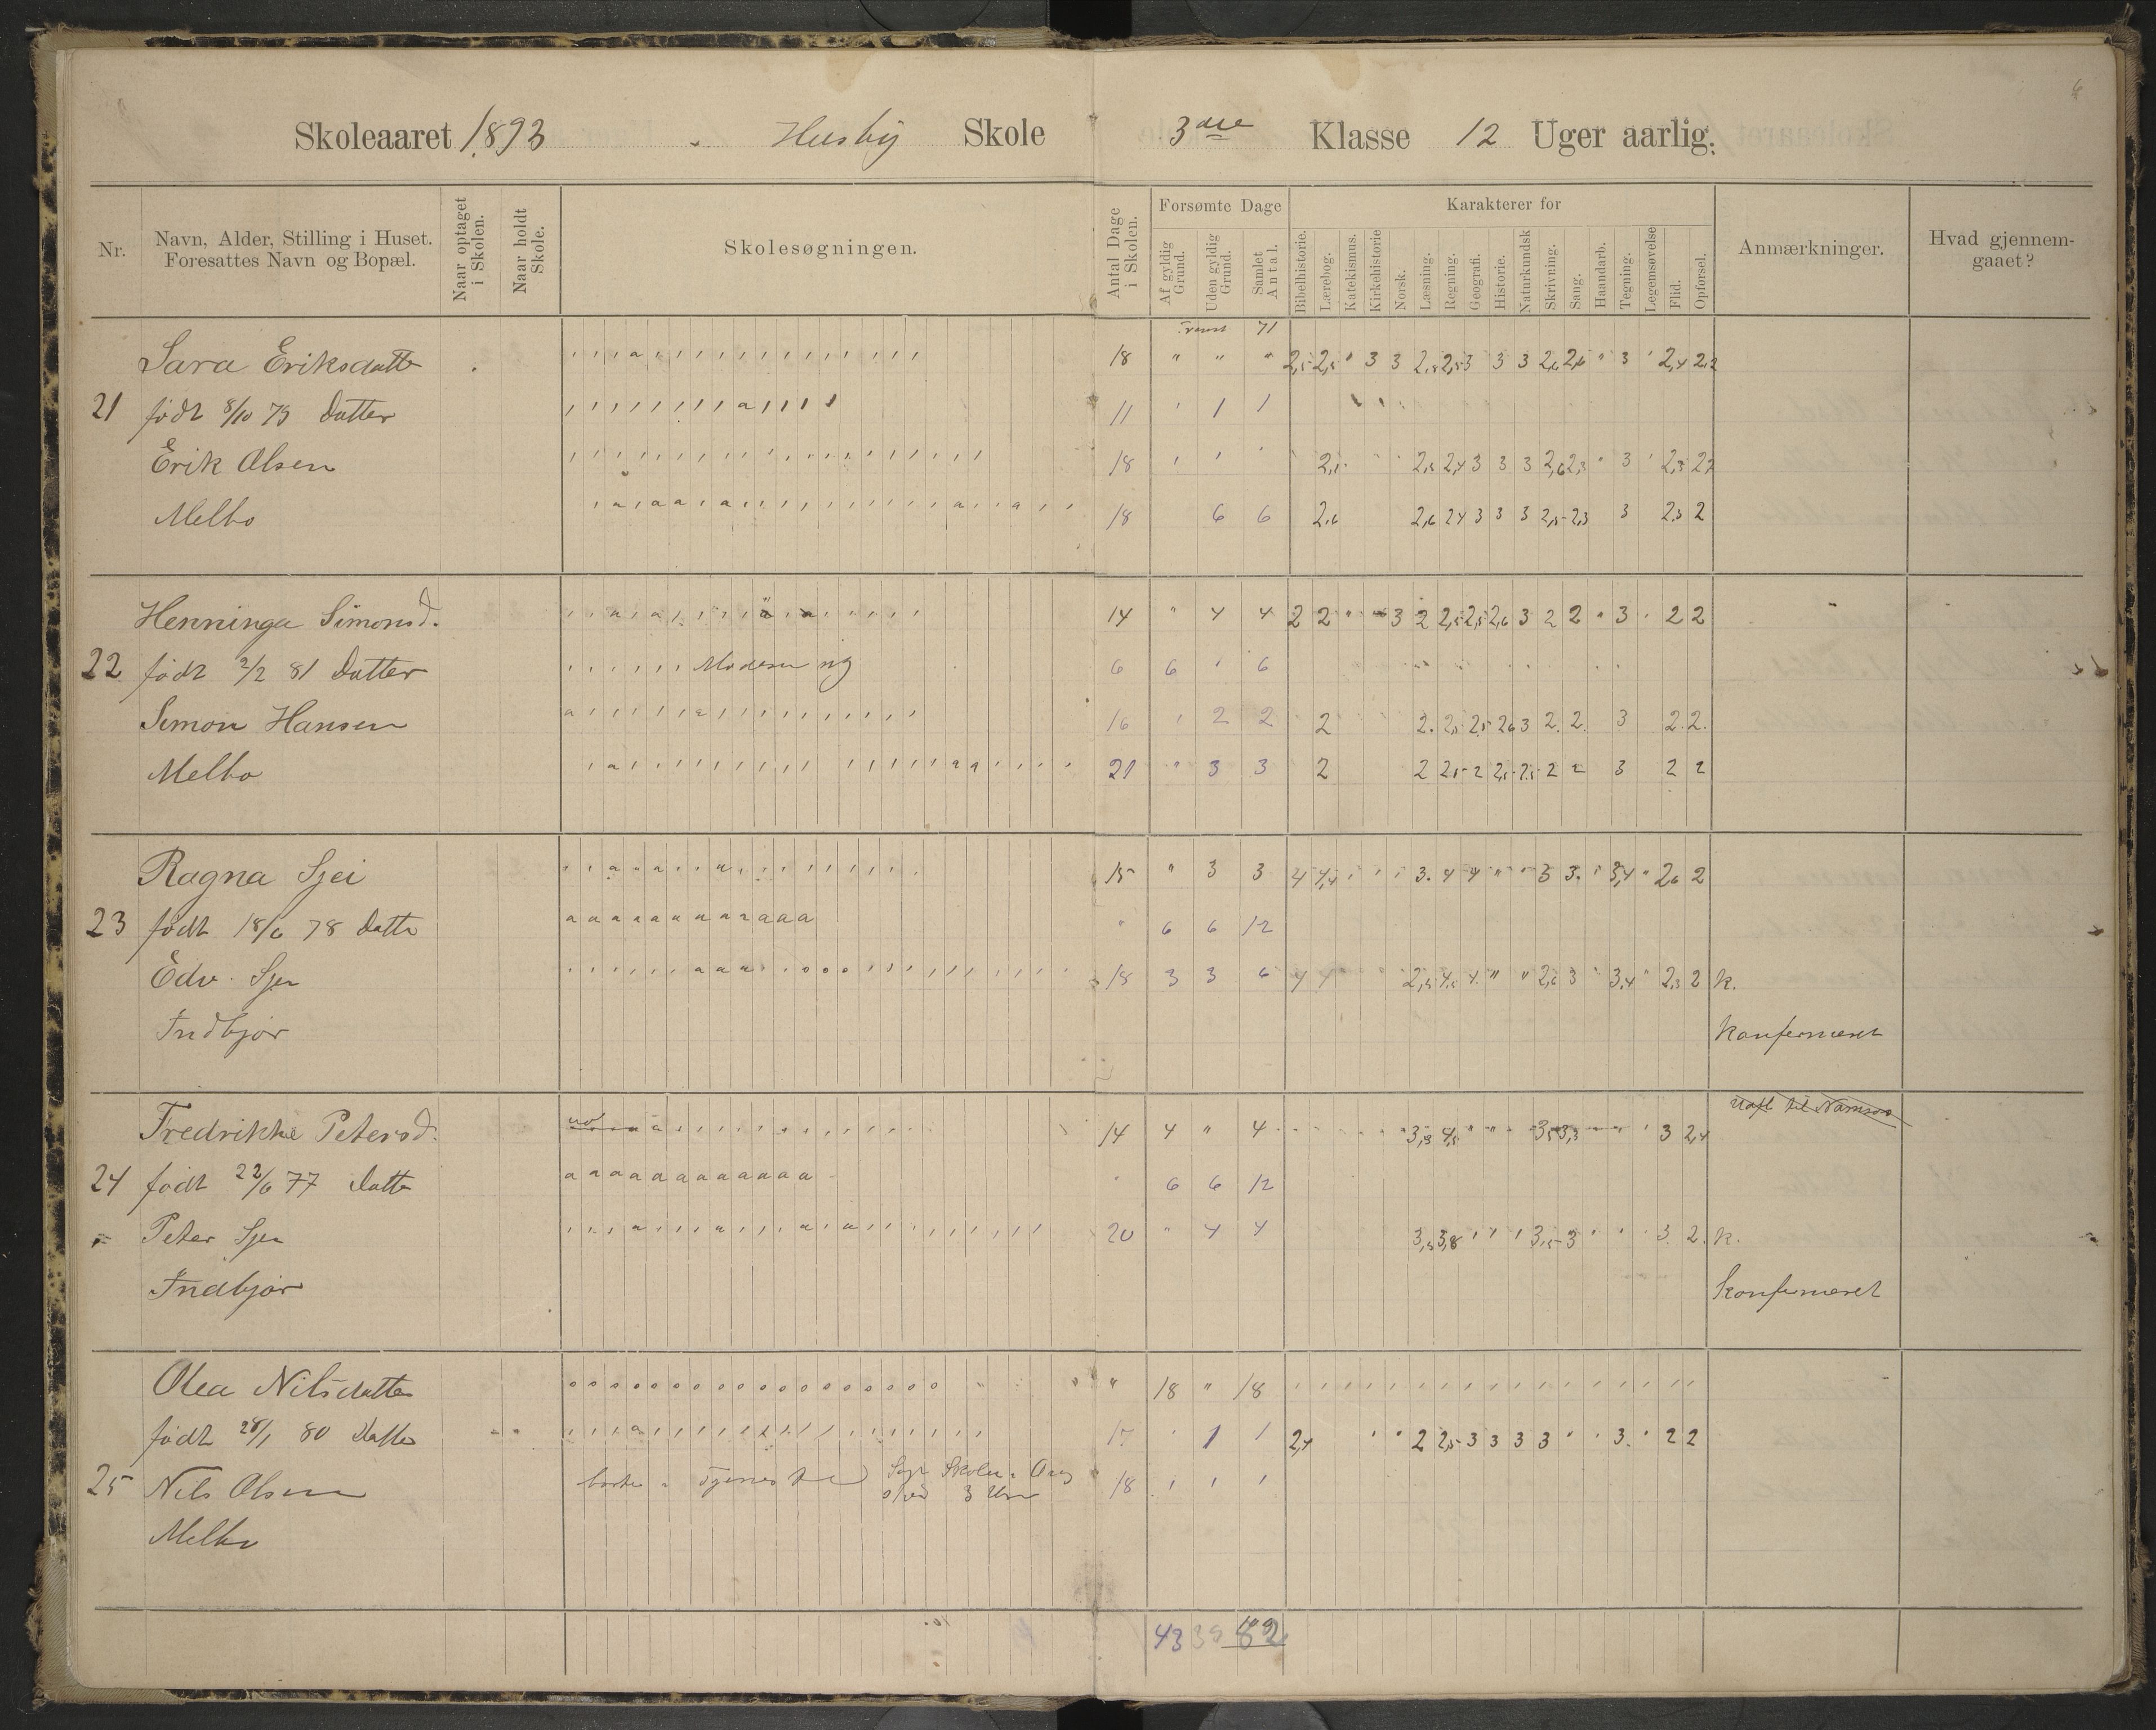 Skoleaaret 1893 Husby Skole 3die Klasse 12 Uger aarlig.
Nr.
Navn, Alder, Stilling i Huset.
Foresattes Navn og Bopæl.
Naar optaget
i Skolen.
Naar holdt
Skole.
Skolesøgningen.
Antal Dage
i Skolen.
Forsømte Dage
Af gyldig
Grund.
Uden gyldig
Grund.
Samlet
Antal.
Karakterer for
Bibelhistorie.
Lærebog.
Katekismus.
Kirkehistorie
Norsk.
Læsning.
Regning.
Geografi.
Historie.
Naturkundsk
Skrivning.
Sang.
Haandarb.
Tegning.
Legemsøvelse
Flid.
Opførsel.
Anmærkninger.
Hvad gjennem-
gaaet?
71
Sara Eriksdatte 18 " " " 2,5 2,5 " 3 3 2,5 2,5 3 3 3 2,6 2,6 " 3 ' 2,4 2,2
21 født 8/10 79 Datter 11 ' 1 1
Erik Olsen 18 ' ' ' 2,5 2,4 3 3 3 2,6 2,3 " 3 ' 2,3
Melbo 18 6 6 2,6 2,6 2,4 3 3 3 2,5 2,3 3 2,3 2
Henninga Simonsd. 14 " 4 4 2 2 3 2 2,5 2,5 2,6 3 2 2 " 3 2 2
22 født 2/2 81 Datter 6 6 ' 6
Simon Hansen 16 ' 2 2 2 2. 2,5 2,5 2,6 3 2. 2. 3 2. 2.
Melbo 21 " 3 3 2 2 2,5 2 2,5 2,5 2 2 3 2 2
Ragna Sjei 15 " 3 3 4 4,4 3. 4 4 " " 3 3. ' 3,4 " 2,6 2
23 født 18/6 78 Datte a a a a a a a a a a a a " 6 6 12
Edv. Sjei 18 3 3 6 4 4 2,5 4,5 4 " " 2,6 3 " 3,4 " 2,3 2 k.
Indbjør konfirmeret
Fredrikke Petersd. 14 4 " 4 3,3 4,5 3,5 3,3 3 2,4
24 født 22/6 77 Datte a a a a a a a a a a a a 6 6 12
Peter Sjei 20 " 4 4 3,5 3,8 3,5 3 3. 2. k.
Indbjør konfirmeret
Olea Nilsdatter o o o o o o o o o o o o o o o o o o " 18 " 18
født 28/1 80 Datter 17 ' 1 1 2,4 2 2,5 3 3 3 3 3. " 2 2
25 Nils Olsen borte i Tjeneste 3 18 ' ' '
Melbo
43 39 82